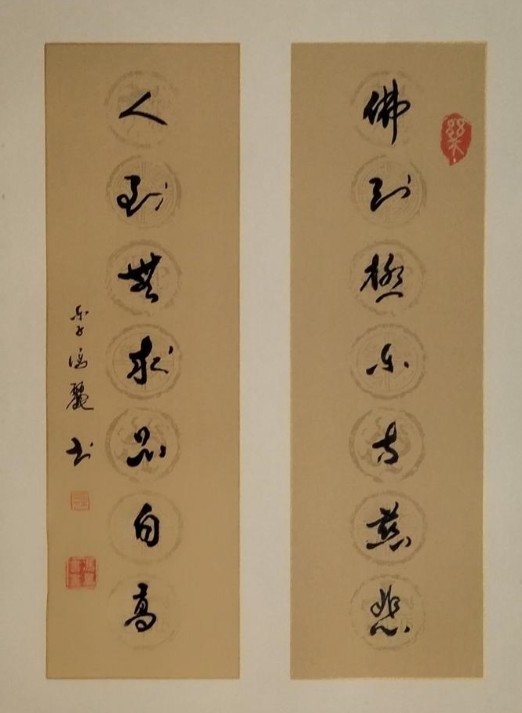 佛到極樂慈悲
人到無求品自高
麗书